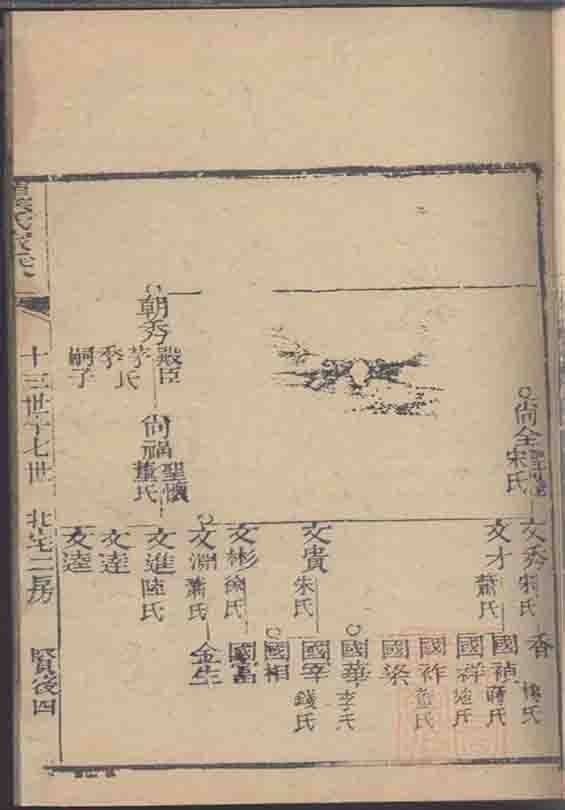 尙全
宋氏
文秀
宋氏
香
文才
蕭氏
國禎
蔣氏
國祥
陸氏
國祚
董氏
國棨
文貴
朱氏
國華
李氏
國宰
錢氏
國相
文彬
徐氏
國富
文淵
蕭氏
金生
朝秀
殿臣
茅氏
季
嗣子
尙禍
聖懷
董氏
文進
陸氏
文達
文逵
十三世于七世
北宅二房
賢後四